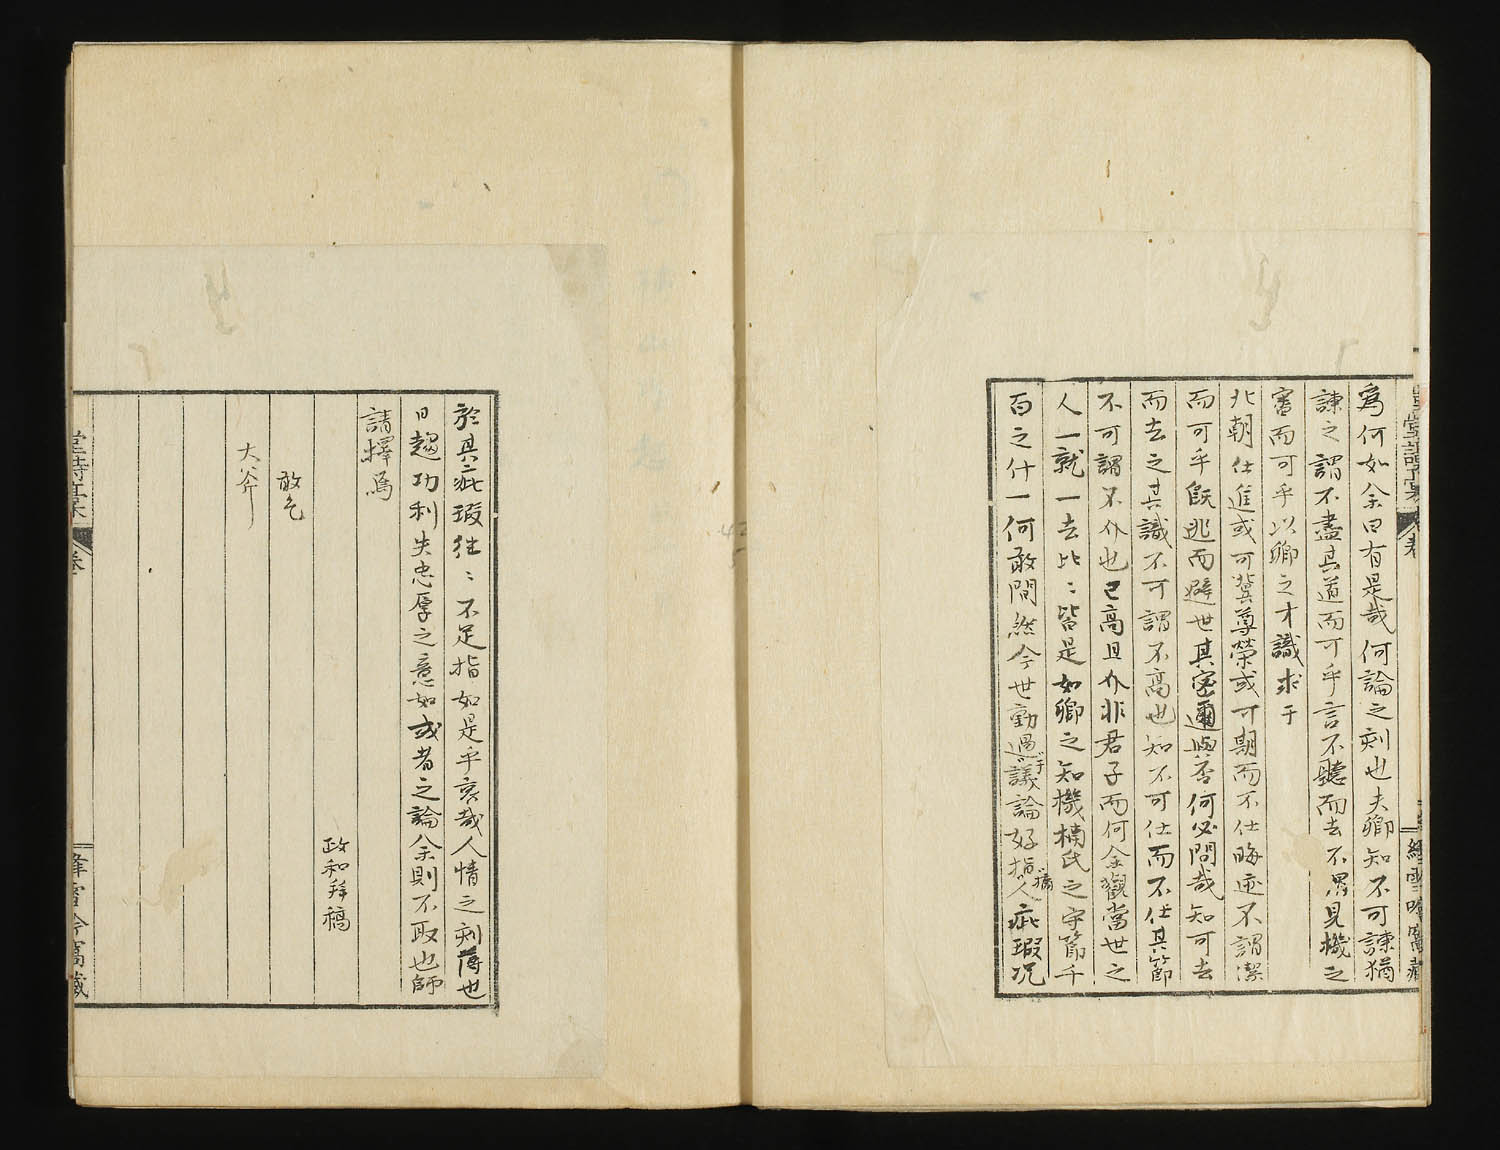 為何如余曰有是哉何論之刻也夫卿知不可諫猶
諫之謂不盡其道而可乎言不聽而去不謂見機之
審而可乎以卿之才識求于
北朝仕進或可冀尊榮或可期而不仕晦迹不謂潔
而可乎既逃而避世其密邇與否何必問哉知可去
而去之其識不可謂不高也知不可仕而不仕其節
不可謂不介也已高且介非君子而何余觀當世之
人一就一去比〻皆是如卿之知機楠氏之守節千
百之什一何敢間然今世勸過于議論好指摘人疵瑕况
於其疵瑕往〻不足指如是乎哀哉人情之刻薄也
日趨功利失忠厚之意如或者之論余則不取也師
請擇焉
政和拜稿
敢乞
大斧
堂詩稿
卷
吟窩藏